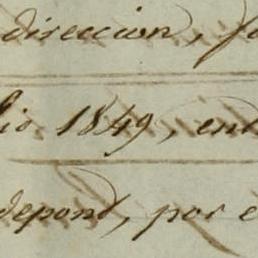 direccion, fo
lio 1849, ent
depond, por e